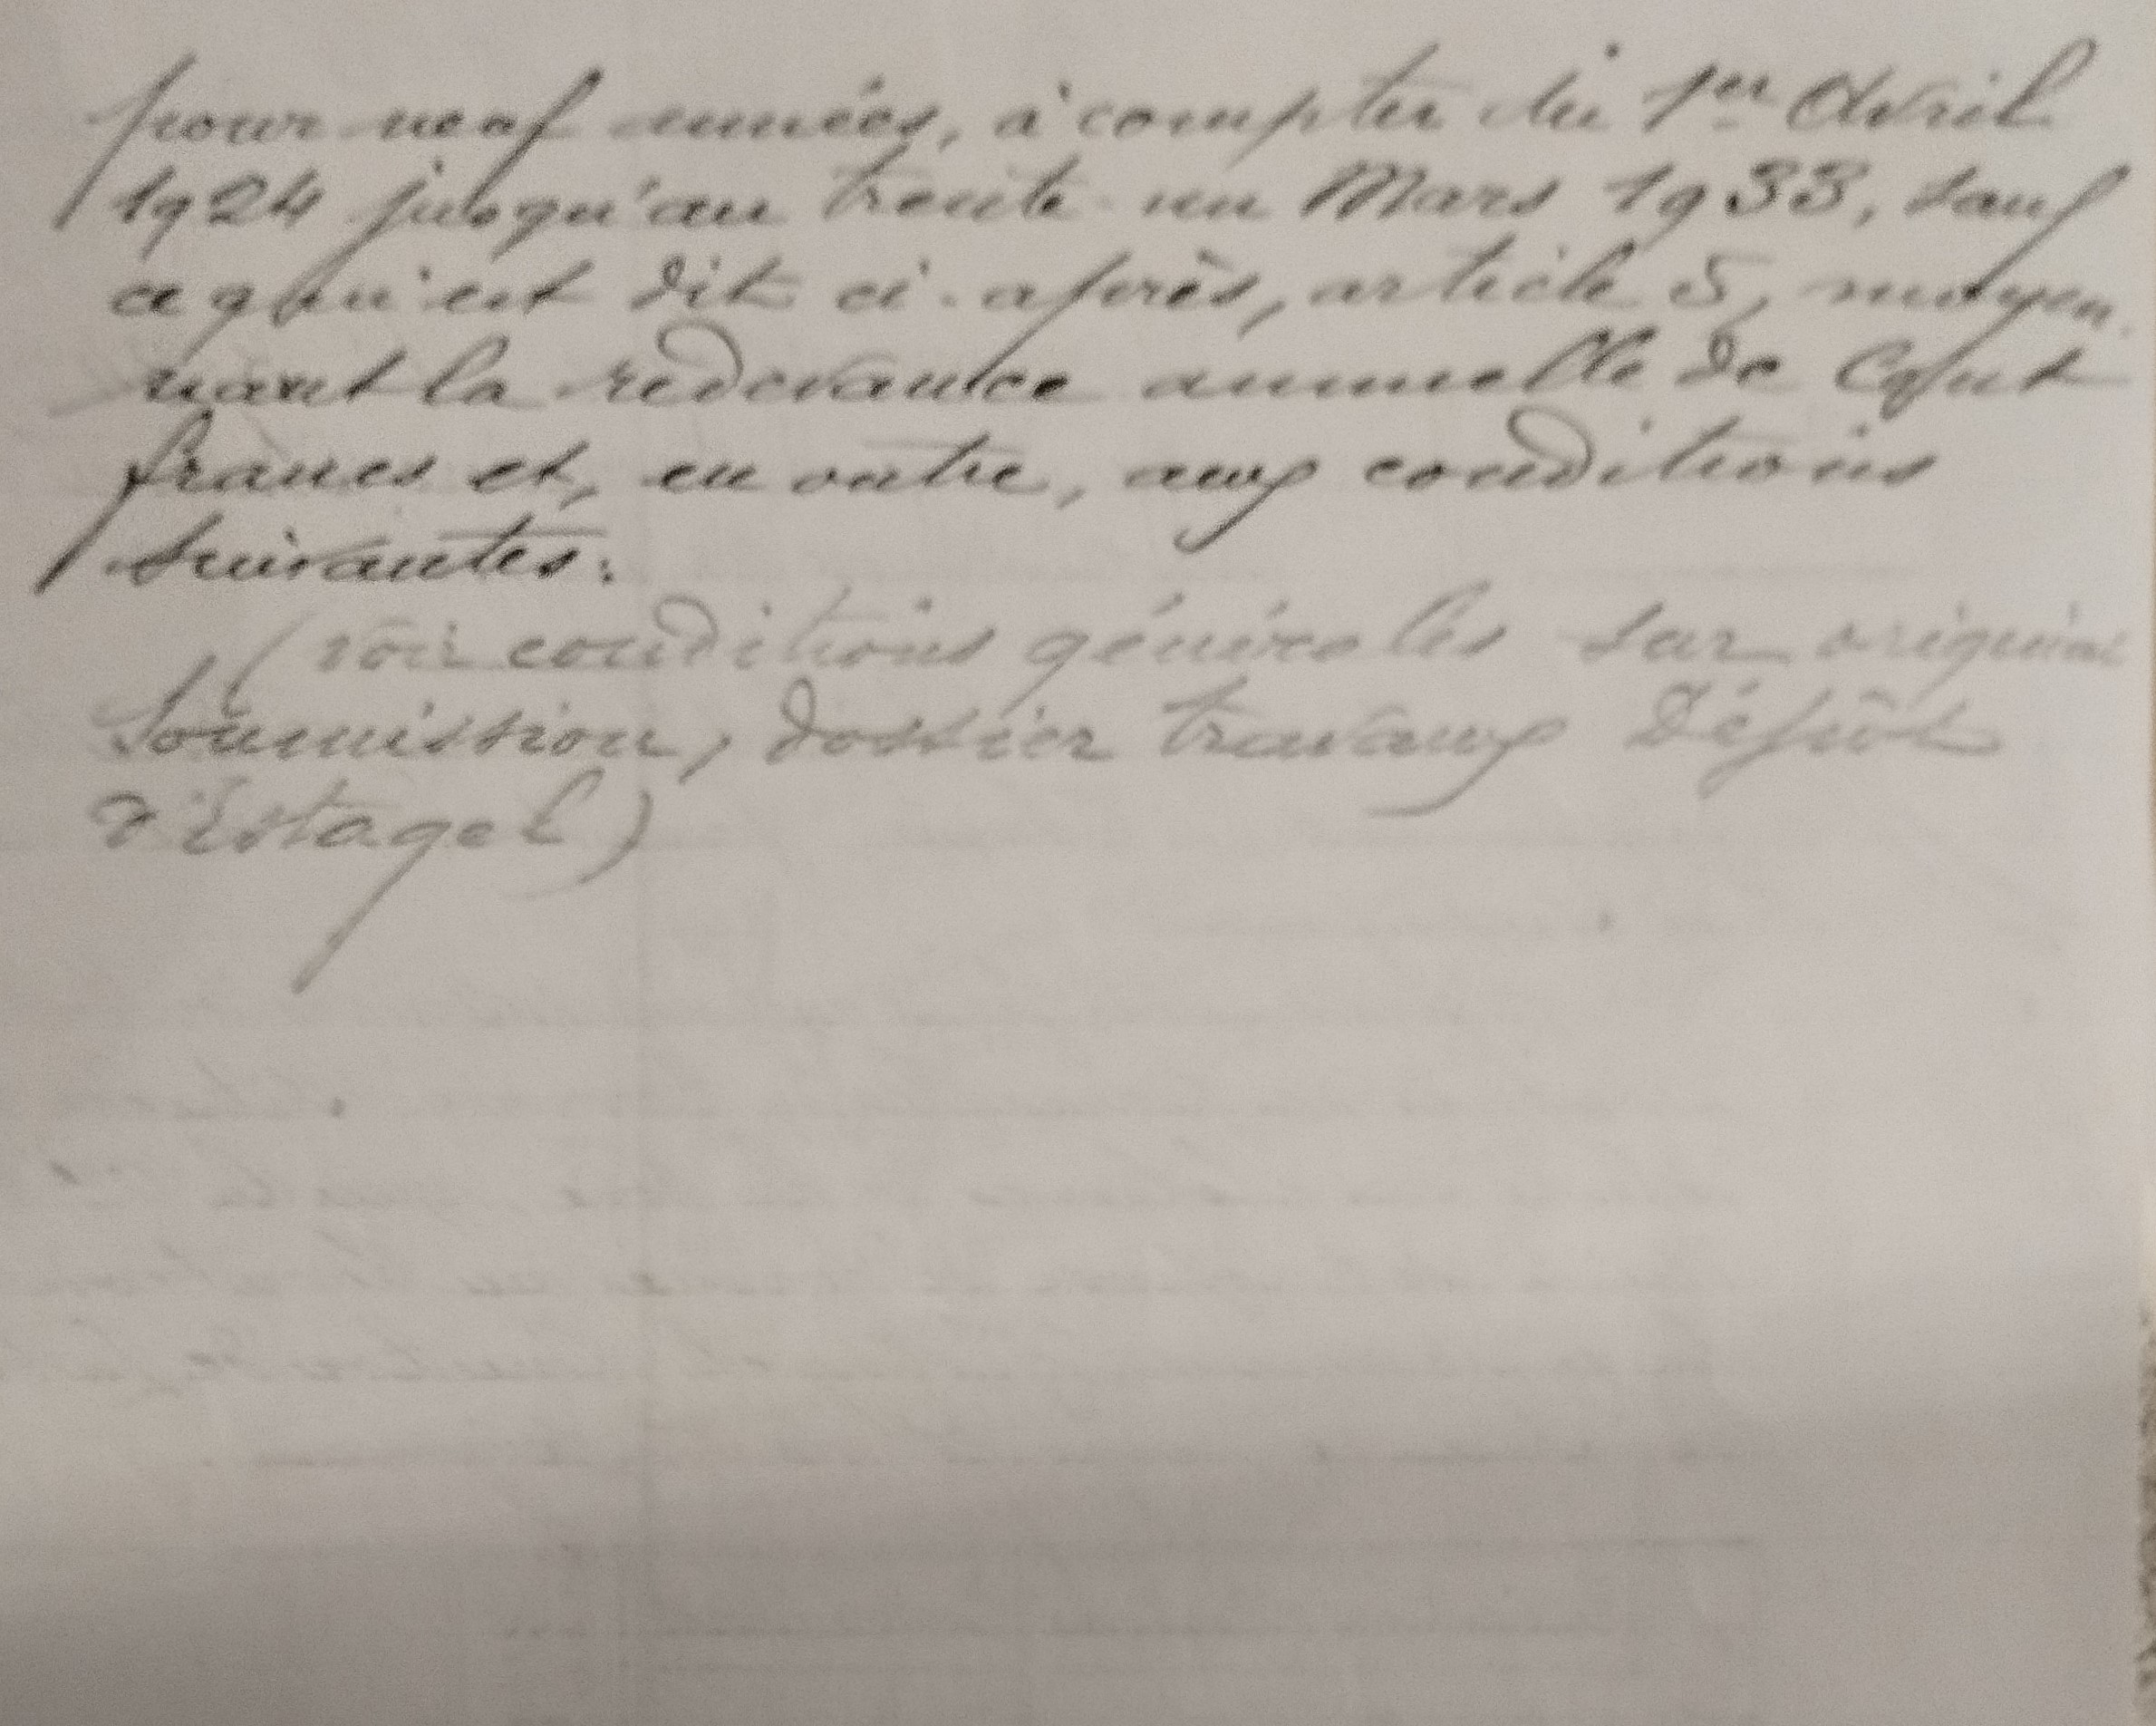 pour neuf années, à compter du 1er Avril
1924 jusqu'au trente-un Mars 1933, sauf
ce qui est dit ci-après, article 5, moyen-
nant la redevance annuelle de Cent
francs et, en outre, aux conditions
suivantes:
(voir conditions générales sur original
Soumission, dossier travaux Dépôt
d'Estagel)